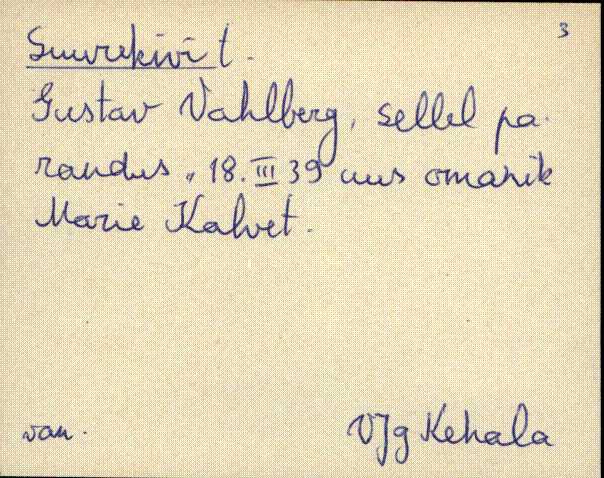 3
Suurekivi t.
Gustav Vahlberg, sellel pa-
randus „18. III 39 uus omanik
Marie Kalvet.
van.
VJg Kehala